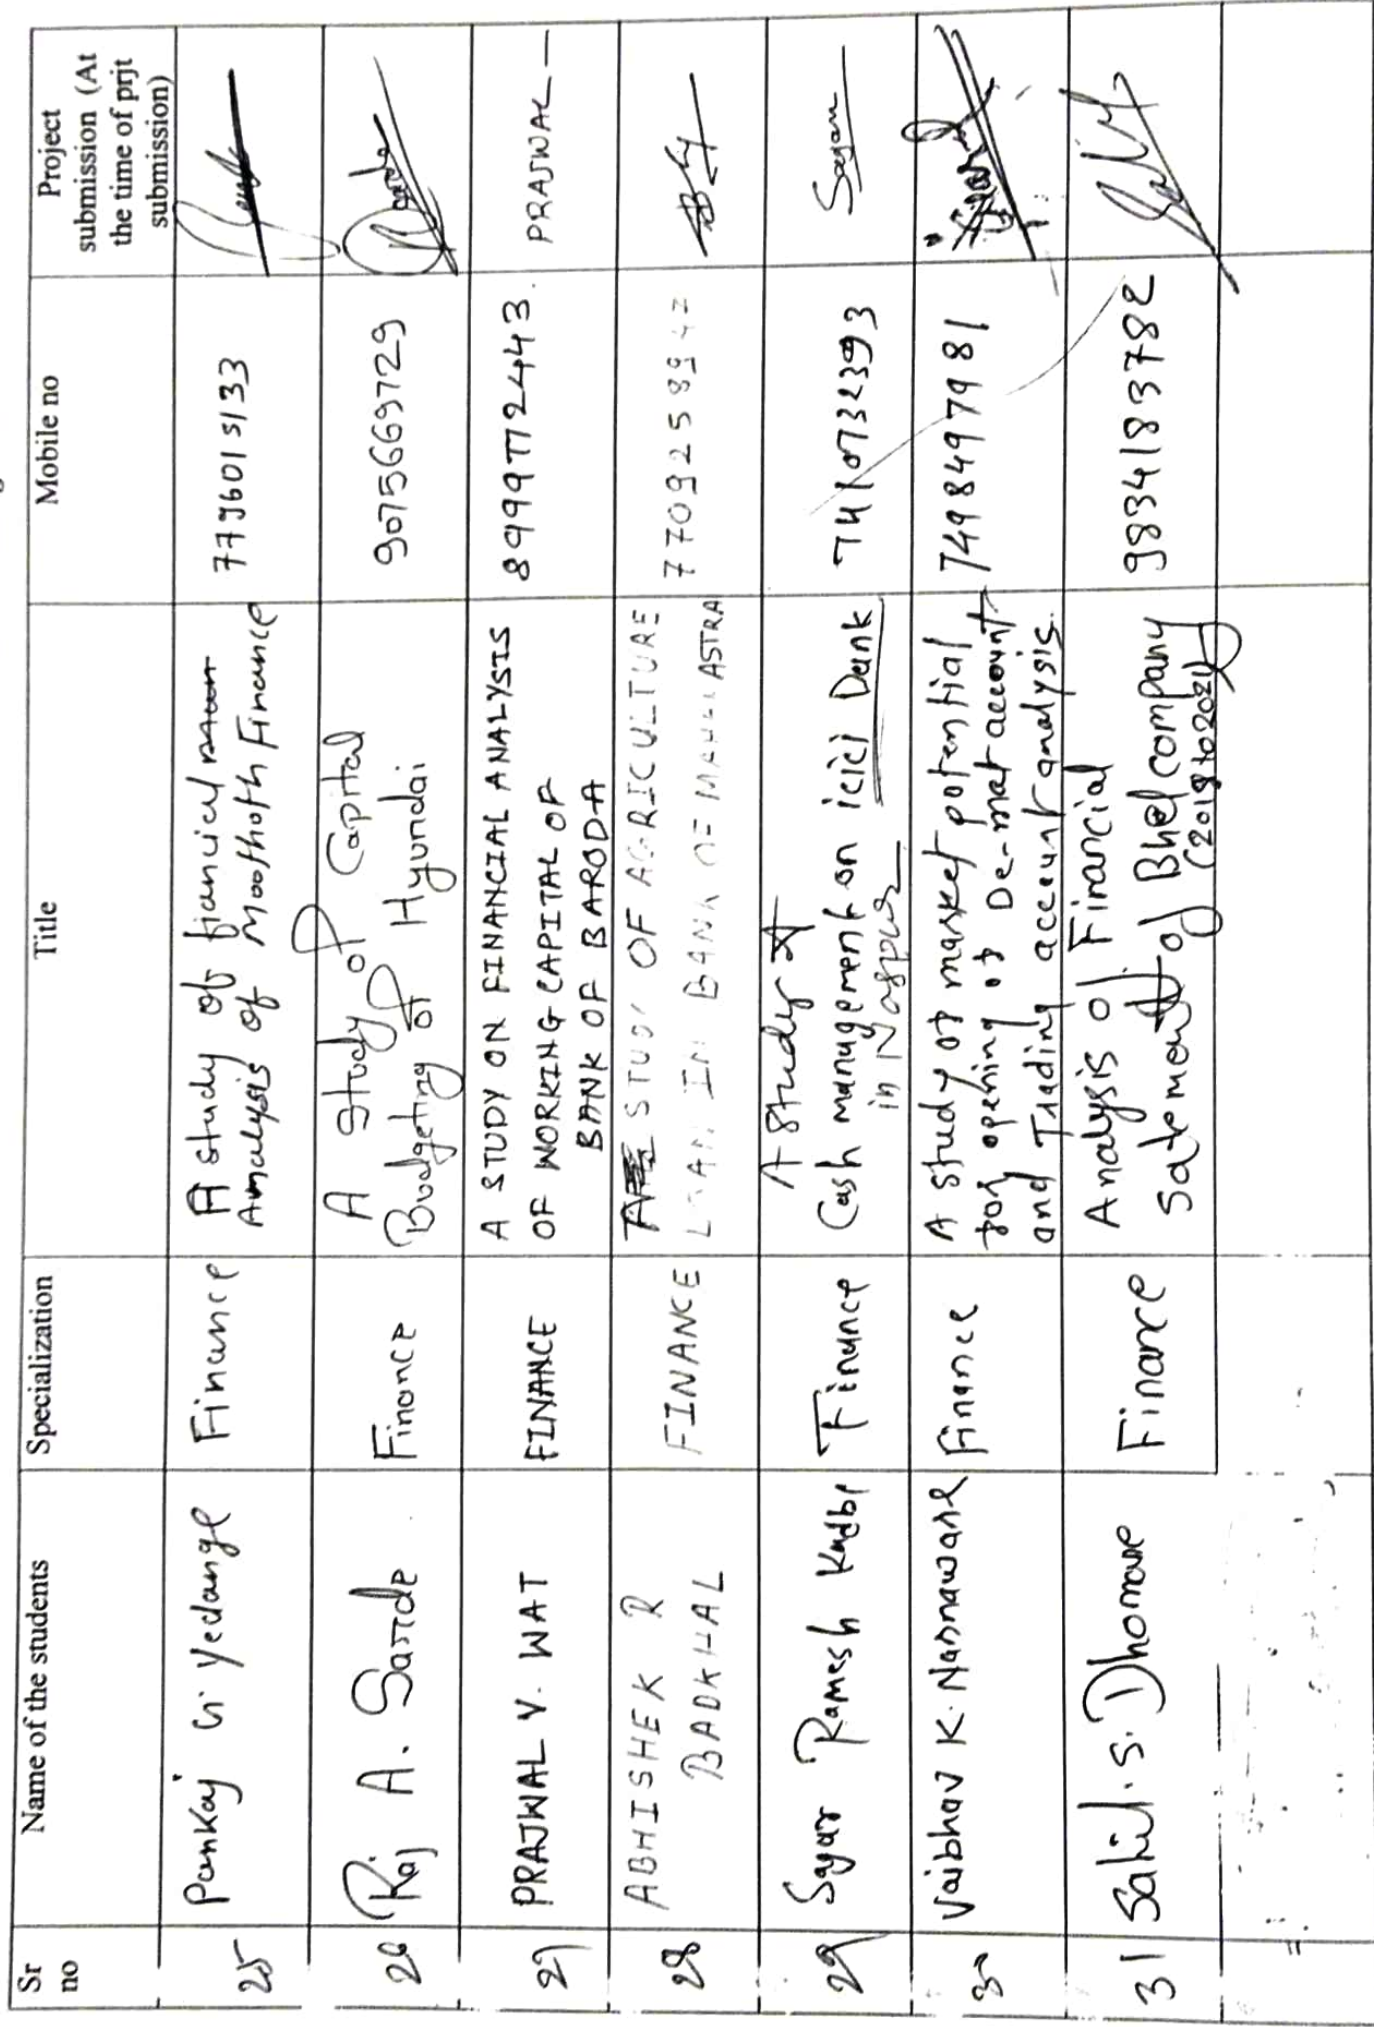 Sr no
Name of the students
Specialization
Title
Mobile no
Project submission (At the time of prjt submission)
25
Pankaj G. Yedange
Finance
A study of fianciel
Analysis of Moothoth Finance
26
Raj A. Sarode
Finance
A Study of Capital
Budgeting of Hyundai
9075669729
27
PRAJWAL V. WAT
FINANCE
A STUDY ON FINANCIAL ANALYSIS
OF WORKING CAPITAL OF
BANK OF BARODA
8999772443.
PRAJWAL
28
ABHISHEK R
BADKHAL
FINANCE
STUDY OF AGRICULTURE
LOAN IN BANK OF MAHARASTRA
29
Sagar Ramesh Kadbe
Finance
A study of
Cash management on icici Bank
in Nagpur
7410732393
Sagar
30
Vaibhav K. Nannaware
Finance
A study of market potential
for opening of De-mat account
and Trading account analysis.
7498497981
31
Sahil. S. Dhomane
Finance
Analysis of Financial
Satement of Bhel company
(2018 to 2021)
9834183782